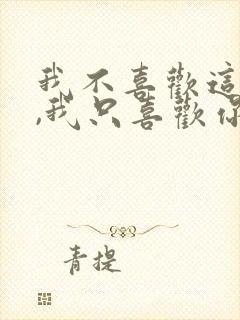 我不喜歡這
,我只喜歡你
青提